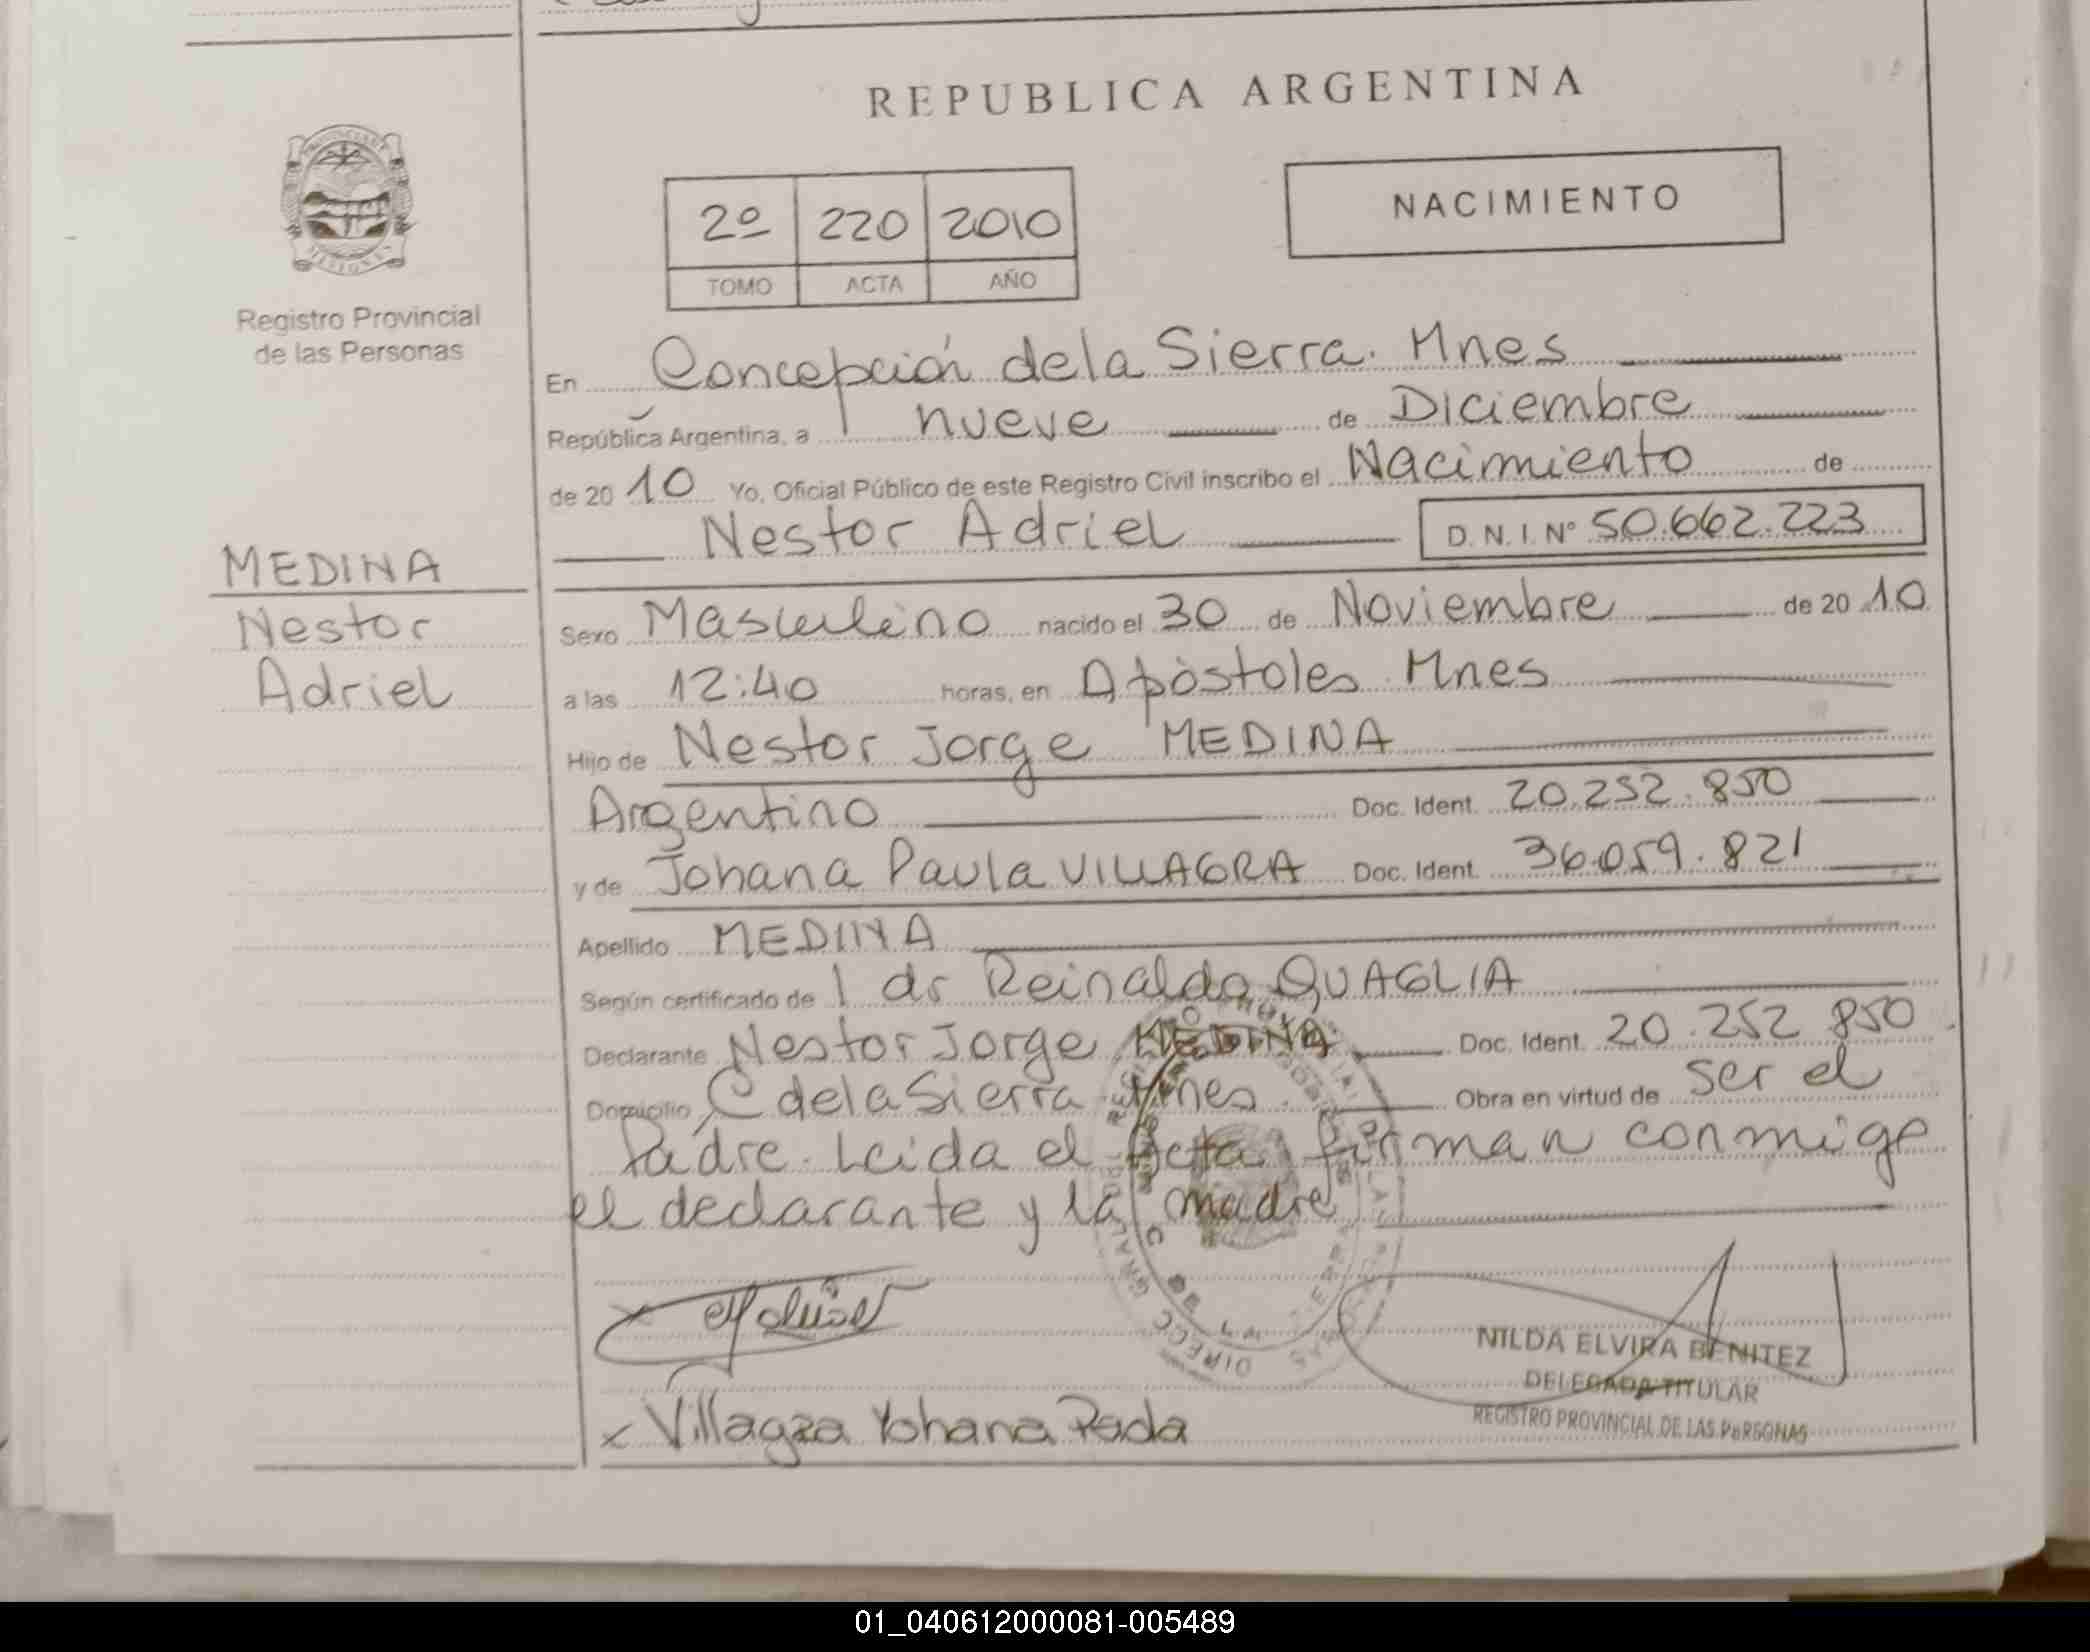 REPUBLICA ARGENTINA
2º 220 2010
TOMO ACTA AÑO
NACIMIENTO
Registro Provincial
de las Personas
MEDINA
Nestor
Adriel
En Concepción de la Sierra. Mnes
República Argentina, a nueve de Diciembre
de 20 10 Yo, Oficial Público de este Registro Civil inscribo el Nacimiento de
Nestor Adriel D.N.I. Nº 50.662.223
Sexo Masculino nacido el 30 de Noviembre de 20 10
a las 12:40 horas, en Apóstoles Mnes
Hijo de Nestor Jorge MEDINA
Argentino Doc. Ident. 20.252.850
y de Johana Paula VILLAGRA Doc. Ident. 36.059.821
Apellido MEDINA
Según certificado de l dr Reinaldo QUAGLIA
Declarante Nestor Jorge MEDINA Doc. Ident. 20.252.850
Domicilio C de la Sierra Mnes. Obra en virtud de ser el
Padre. Leida el Acta, firman conmigo
el declarante y la madre
NILDA ELVIRA BENITEZ
DELEGADA TITULAR
REGISTRO PROVINCIAL DE LAS PERSONAS
x Villagra Yohana Paula
01_040612000081-005489